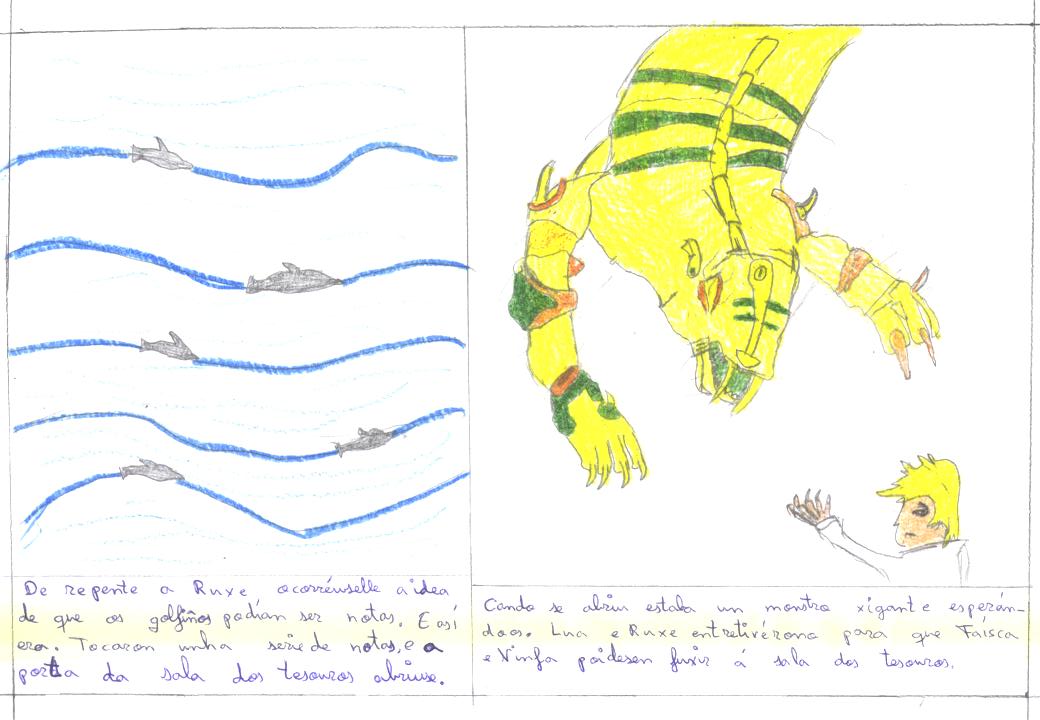 De repente a Ruxe, ocorréuselle a idea
de que os golfiños podían ser notas. E así
era. Tocaron unha serie de notas, e a
porta da sala dos tesouros abriuse.
Cando se abriu estaba un monstro xigante esperán-
doos. Lua e Ruxe entretivérono para que Faísca
e Ninfa poidesen fuxir á sala dos tesouros.